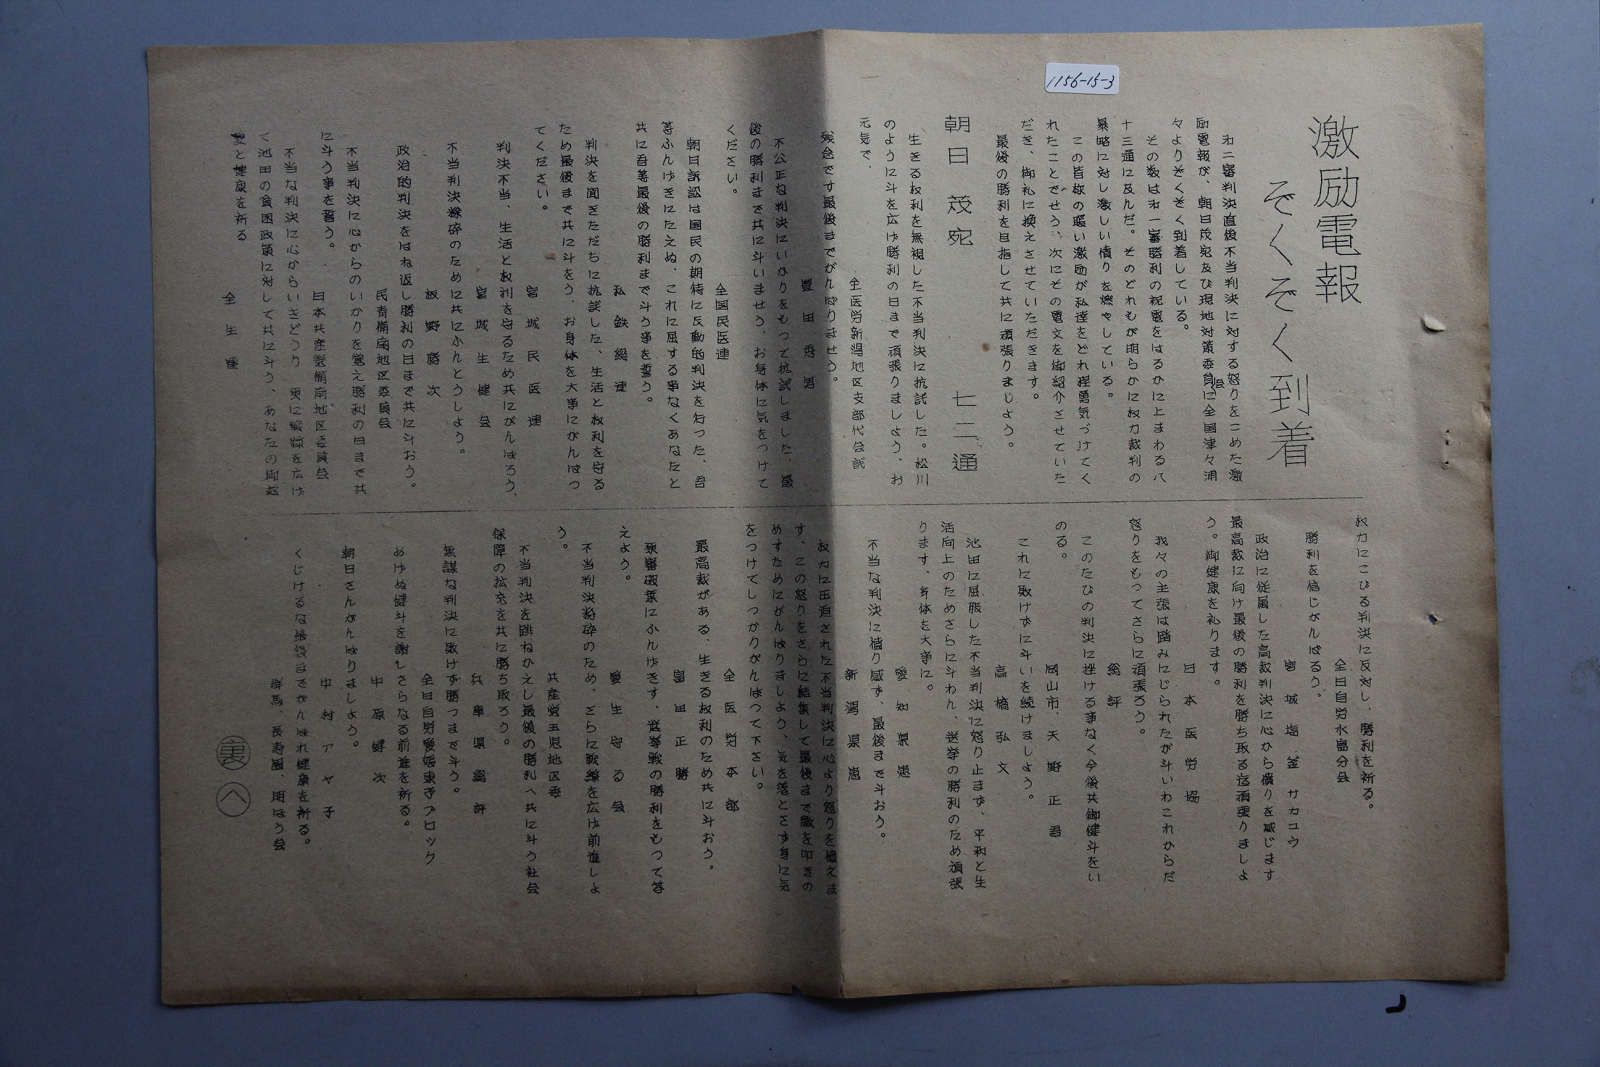 1156-15-3
激励電報
ぞくぞく到着
才二審判決直後不当判決に対する怒りをこめた激
励電報が、朝日茂宛及び現地対策委員会に全国津々浦
々よりぞくぞく到着している。
その数は才一審勝利の祝電をはるかに上まわる八
十三通に及んだ。そのどれもが明らかに权力裁判の
暴略に対し激しい憤りを燃やしている。
この皆様の暖い激励が私達をどれ程勇気づけてく
れたことでせう、次にその電文を御紹介させていた
だき、御礼に換えさせていただきます。
最後の勝利を目指して共に頑張りましよう。
朝日茂宛 七二通
生きる权利を無視した不当判決に抗試した。松川
のように斗を広け勝利の日まで頑張りましよう、お
元気で、
全医労新潟地区支部代会議
残念です最後までがんばりませう。
豊田秀男
不公正な判決にいかりをもつて抗試しました、最
後の勝利まで共に斗いませう、お身体に気をつけて
ください。
全国民医連
朝日訴訟は国民の期待に反動的判決を行った、吾
等ふんげきにたえぬ、これに屈する事なくあなたと
共に吾等最後の勝利まで斗う事を誓う。
私鉄総連
判決を聞きただちに抗談した、生活と权利を守る
ため最後まで共に斗をう、お身体を大事にがんばつ
てください。
宮城民医連
判決不当、生活と权利を守るため共にがんばろう、
宮城生健会
不当判決粉砕のために共にふんとうしよう。
坂野勝次
政治的判決をはね返し勝利の日まで共に斗おう。
民青備南地区委員会
不当判決に心からのいかりを覚え勝利の日まで共
に斗う事を誓う。
日本共産党備南地区委員会
不当な判決に心からいきどうり 更に戦線を広け
く池田の貧困政策に対して共に斗う、あなたの斗志
愛と健康を祈る
全生連
权力にこびる判決に反対し、勝利を祈る。
全日自労水島分会
勝利を信じがんばろう、
宮城塩釜 サカコウ
政治に従属した高裁判決に心から憤りを感じます
最高裁に向け最後の勝利を勝ち取る迄頑張りましよ
う。御健康を祈ります。
日本医労協
我々の主張は踏みにじられたが斗いわこれからだ
怒りをもつてさらに頑張ろう。
総評
このたびの判決に挫ける事なく今後共御健斗をい
のる。
岡山市、天野正君
これに敗けずに斗いを続けましよう。
高橋弘文
池田に屈服した不当判決に怒り止まず、平和と生
活向上のためさらに斗わん、選挙の勝利のため頑張
ります、身体を大事に。
愛知県患
不当な判決に憤り感ず、最後まで斗おう。
新潟県患
权力に圧迫された不当判決に心より怒りを覚えま
す、この怒りをさらに結集して最後まで敵を叩きの
めすためにがんばりましよう、気を落とさず身に気
をつけてしつかりがんばつて下さい。
全医労本部
最高裁がある、生きる权利のため共に斗おう。
富田正勝
原審破棄にふんげきす、選挙戦の勝利をもつて答
えよう。
愛生守る会
不当判決粉砕のため、さらに戦線を広け前進しよ
う。
共産党玉児地区委
不当判決を跳ねかえし最後の勝利へ共に斗う社会
保障の拡充を共に勝ち取ろう。
兵庫県総評
無謀な判決に敗けず勝つまで斗う。
全日自労愛媛東予ブロック
あけぬ健斗を謝しさらなる前進を祈る。
中原健次
朝日さんがんばりましよう。
中村アヤ子
くじけるな最後までがんばれ健康を祈る。
群馬、長寿園、明ほう会
裏へ